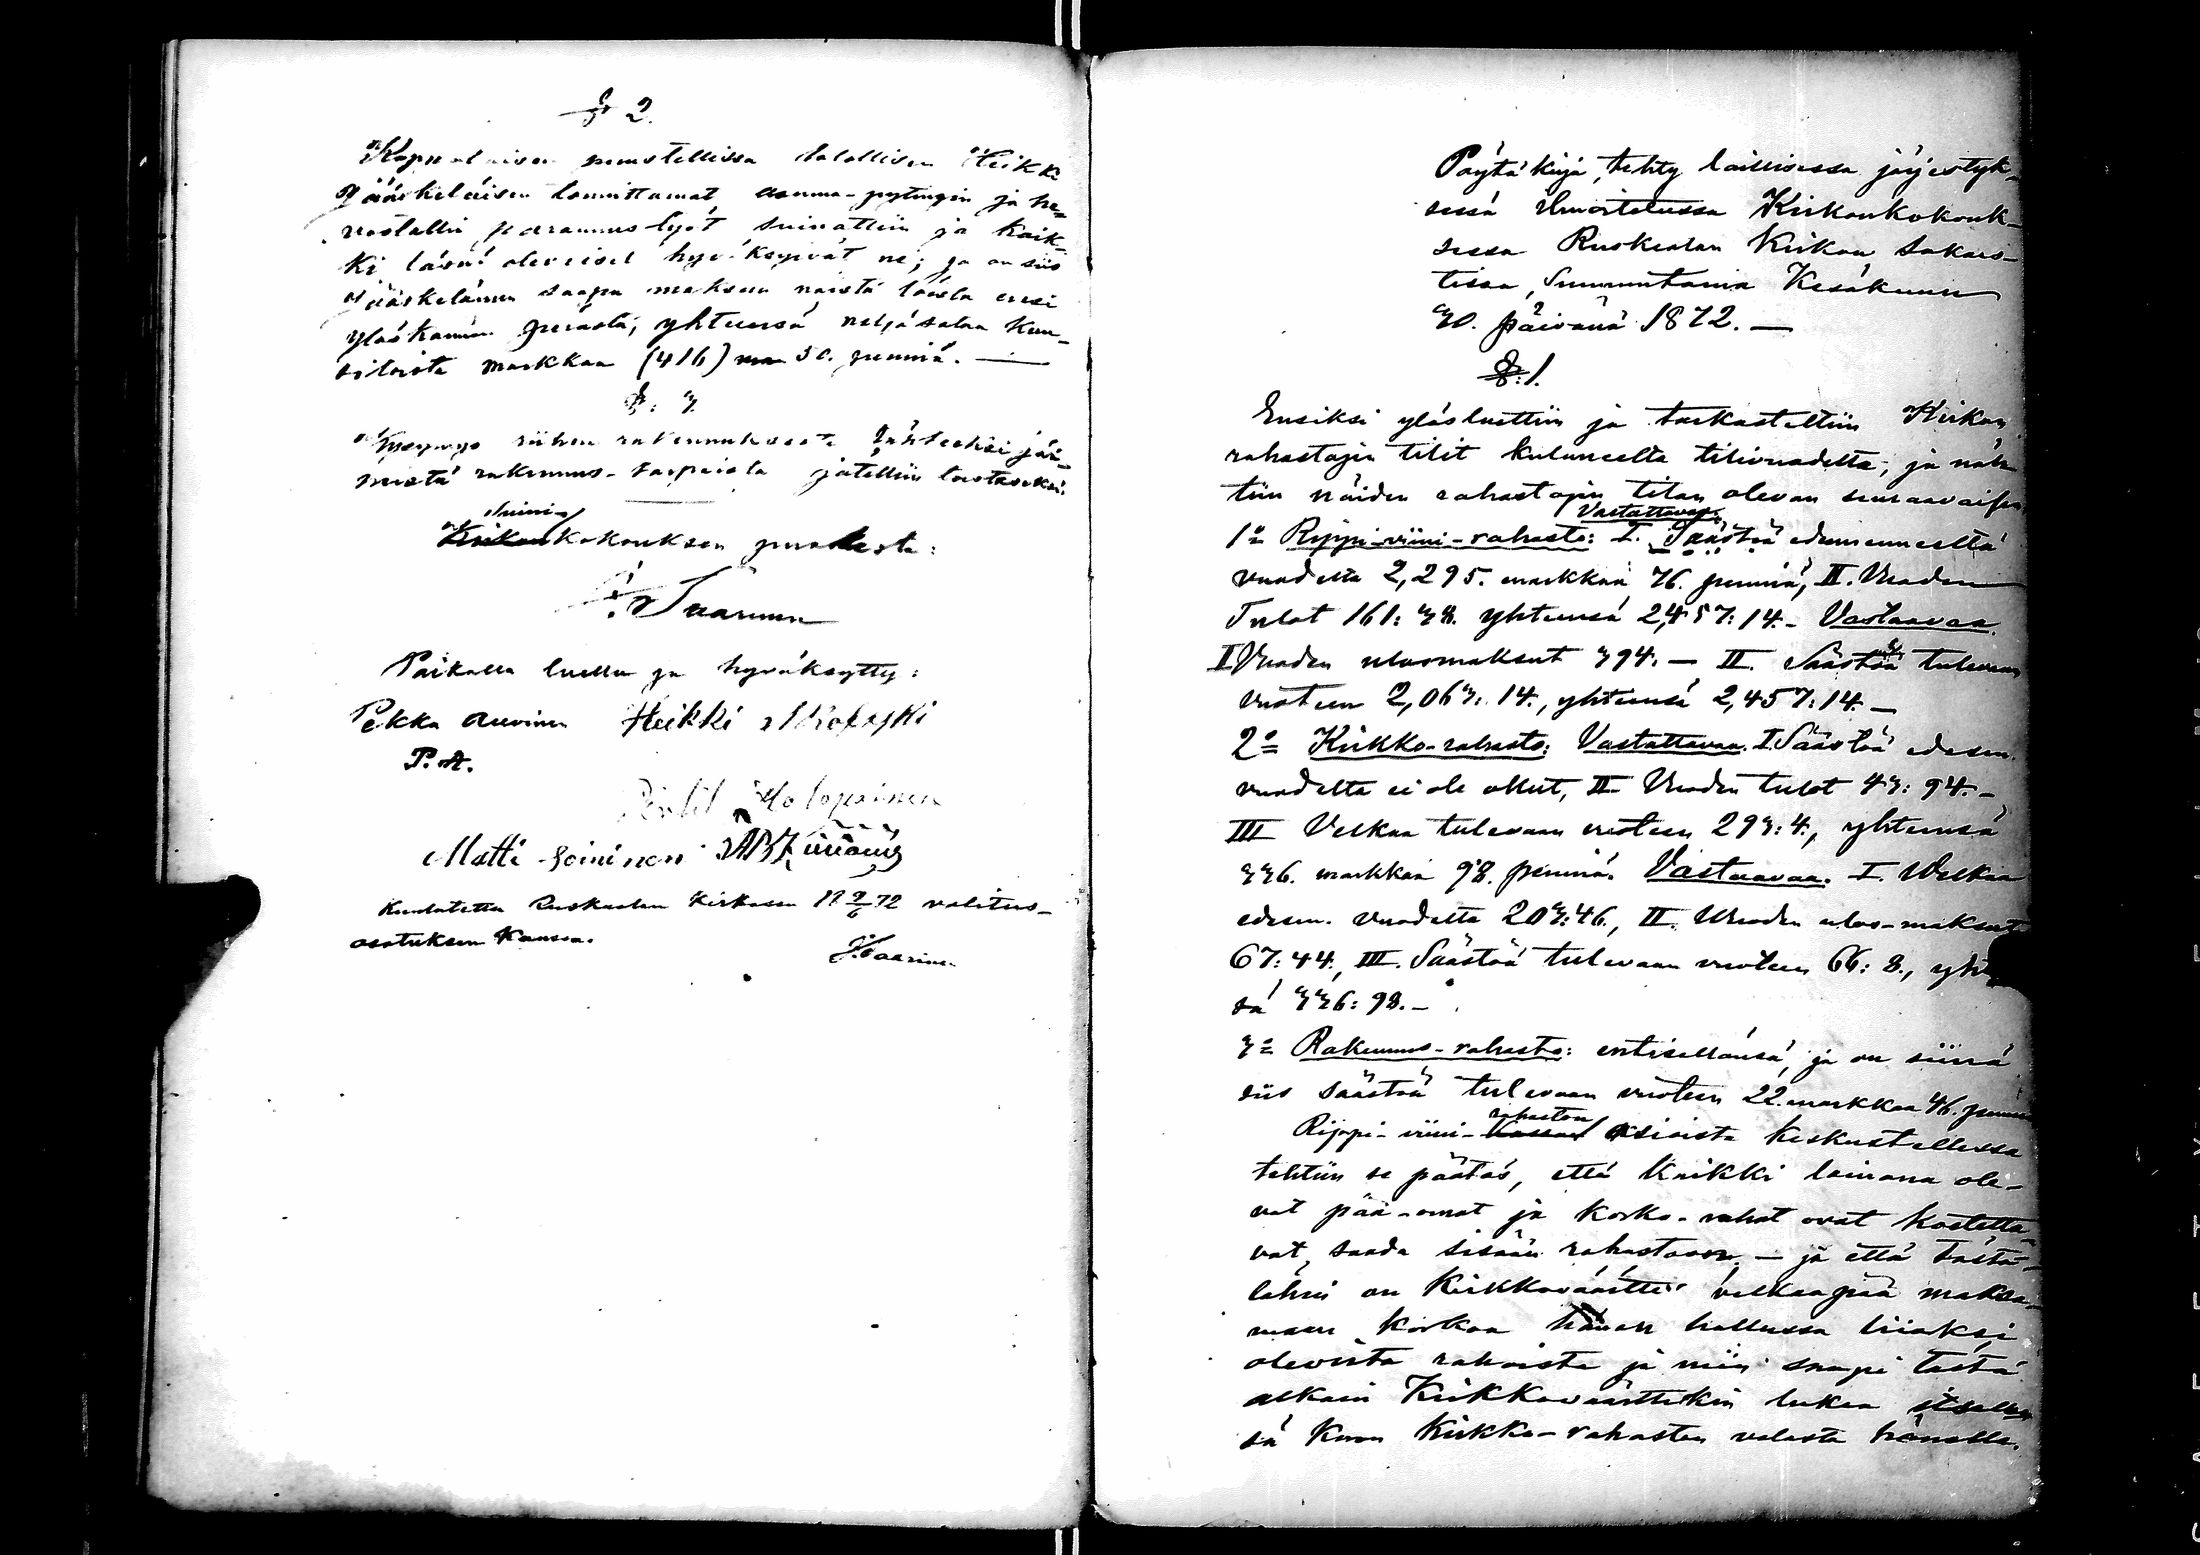 § 2.
Kappalaisen puustellissa talollisen Heikki
Jääskeläisen toimittamat asuma-pytingin ja he-
vostallin parannus-työt suinattiin ja kaik-
ki läsnä olevaiset hyväksyivät ne; ja on siis
Jääskeläinen saapa maksun näistä töistä ensi
yläskannon perästä, yhteensä neljäsataa kuu-
sitoista markkaa (416) 50. penniä. —
§: 3.
Kysymys riihen rakennuksesta tähteeksi jää-
neistä rakennus-tarpeista jätettiin toistaseksi.
Kuni-
Kirkon kokouksen puolesta:
J. Saarinen
Paikalla luettu ja hyväksytty:
Pekka Heikki
P. A.
Pentti Holopainen
Matti Soininen
Kuulutettu Ruskealan Kirkossa 18 9/6 72 valitus-
osotuksen kanssa.
J. Saarinen
Pöytäkirja, tehty laillisessa järjestyk-
sessä ilmoitetussa Kirkonkokouk-
sessa Ruskealan Kirkon Sakas-
tissa, Sunnuntaina Kesäkuun
30. päivänä 1872. —
§: 1.
Ensiksi ylösluettiin ja tarkasteltiin Kirkon
rahastojen tilit kuluneelta tilivuodelta, ja näh-
tiin näiden rahastojen tilan olevan seuraavaisen
Vastattavaa:
1:o Rippi-viini-rahasto: I. Säästöä edesmenneeltä
vuodelta 2,295. markkaa 76. penniä, II. Vuoden
Tulot 161: 38. yhteensä 2,457: 14. - Vastaavaa.
I Vuoden ulosmaksut 394. — II. Säästöä tulevaan
vuoteen 2,063: 14., yhteensä 2,457: 14. —
2:o Kirkko-rahasto: Vastattavaa. I. Säästöä edesm.
vuodelta ei ole ollut, II Vuoden tulot 43: 94. -
III Velkaa tulevaan vuoteen 293: 4., yhteensä
336. markkaa 98. penniä. Vastaavaa. I. Velkaa
edesm. vuodelta 203: 46., II. Vuoden ulos-maksut
67: 44., III. Säästöä tulevaan vuoteen 66: 8.,
sä 336: 98. -
3:o Rakennus-rahasto: entisellänsä, ja on siinä
siis säästöä tulevaan vuoteen 22. markkaa 46. penniä
rahaston
Rippi-viini-Kassan asioista keskustellessa
tehtiin se päätös, että kaikki lainana ole-
vat pää-omat ja korko-rahat ovat koetetta-
vat saada sisään rahastoon, — ja että tästä-
lähin on Kirkkoväärtti velkaapää maksa-
maan korkoa hänen hallussa liiaksi
olevista rahoista ja niin saapi tästä
alkain Kirkkoväärttikin lukea itsellen-
sä koron Kirkko-rahaston velasta hänelle.